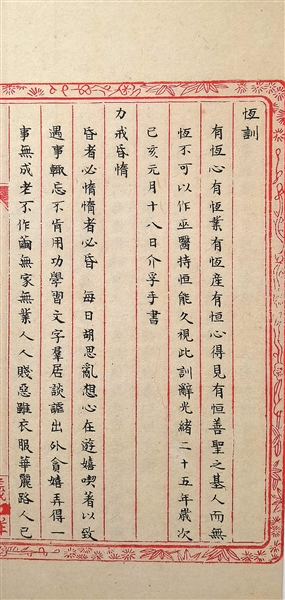 恆訓
有恆心有恆業有恆產有恒心得見有恒善聖之基人而無
恆不可以作巫醫持恒能久視此訓辭光緒二十五年歲次
己亥元月十八日介孚手書
力戒昏惰
昏者必惰惰者必昏 每日胡思亂想心在遊嬉喫著以致
遇事輒忘不肯用功學習文字羣居談謳出外貪嬉弄得一
事無成老不作繭無家無業人人賤惡雖衣服華麗路人已